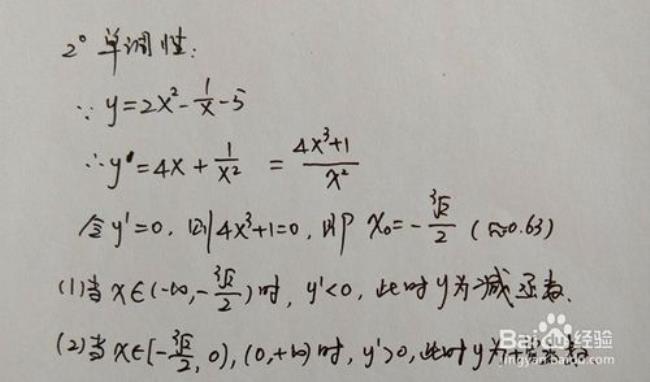 2° 单调性:
∵ y=2x²-1/x-5
∴ y'=4x+1/x² = (4x³+1)/x²
令y'=0, 则4x³+1=0, 即 x₀=-∛2/2 (≈0.63)
(1)当 x∈(-∞,-∛2/2)时, y'<0, 此时y为减函数.
(2)当 x∈[-∛2/2, 0), (0,+∞)时, y'>0, 此时y为增函数
Baidu经验
jingyan.baidu.com